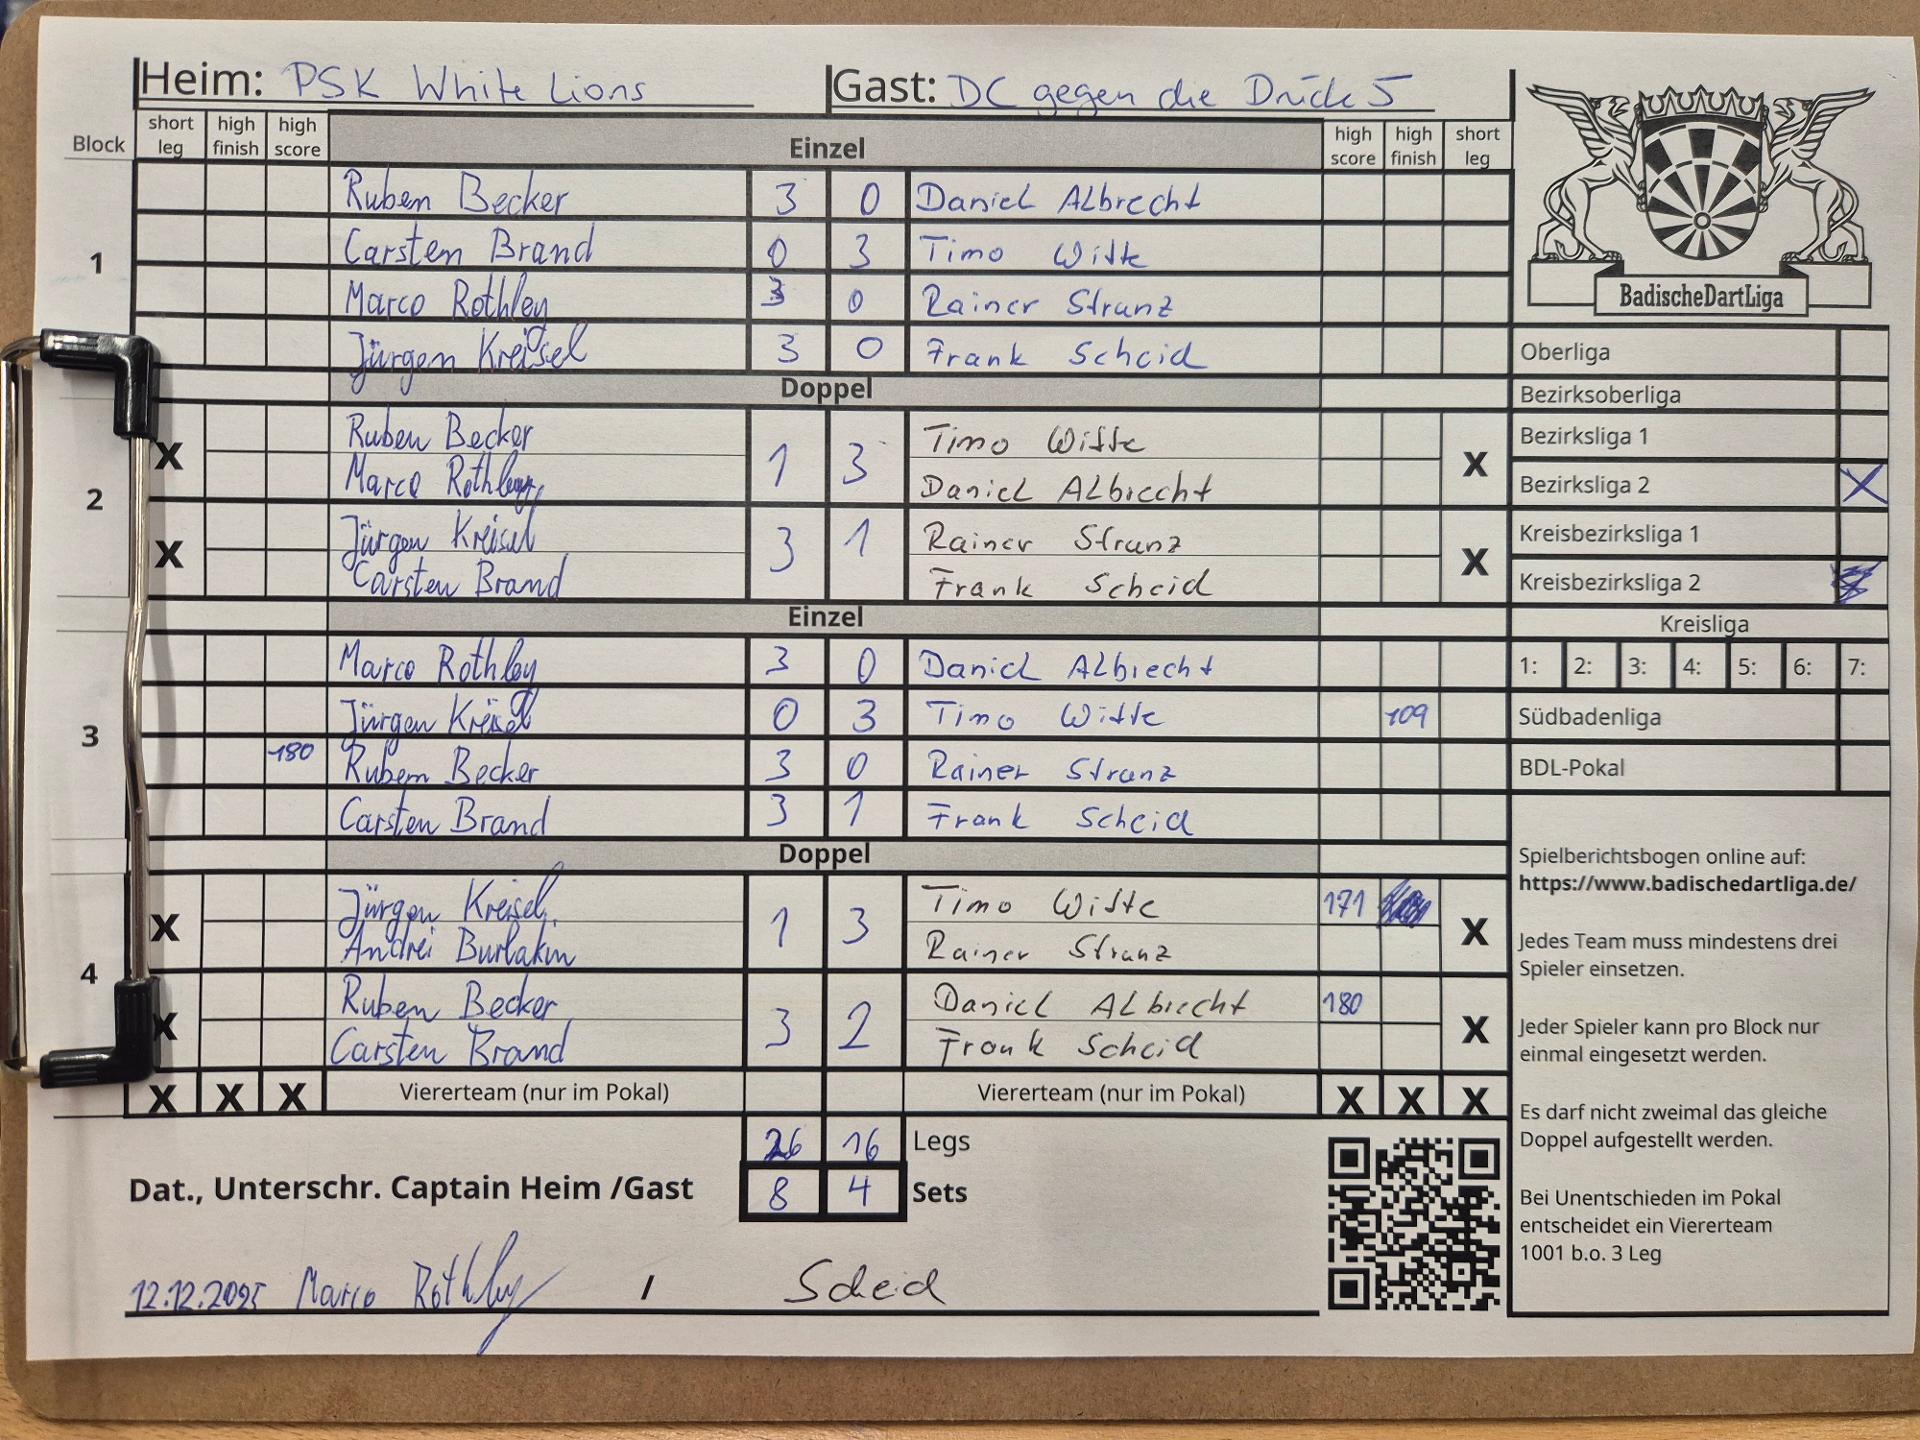 Heim: PSK White Lions Gast: DC gegen die Drück 5
Block short leg high finish high score Einzel high score high finish short leg
1
Ruben Becker 3 0 Daniel Albrecht
Carsten Brand 0 3 Timo Witte
Marco Rothley 3 0 Rainer Stranz
Jürgen Kreisel 3 0 Frank Scheid
Doppel
2
X Ruben Becker 1 3 Timo Witte X
Marco Rothley Daniel Albrecht
X Jürgen Kreisel 3 1 Rainer Stranz X
Carsten Brand Frank Scheid
Einzel
3
Marco Rothley 3 0 Daniel Albrecht
Jürgen Kreisel 0 3 Timo Witte 109
180 Ruben Becker 3 0 Rainer Stranz
Carsten Brand 3 1 Frank Scheid
Doppel
4
X Jürgen Kreisel 1 3 Timo Witte 171 X
Andrei Burlakin Rainer Stranz
X Ruben Becker 3 2 Daniel Albrecht 180 X
Carsten Brand Frank Scheid
X X X Viererteam (nur im Pokal) Viererteam (nur im Pokal) X X X
26 16 Legs
Dat., Unterschr. Captain Heim /Gast 8 4 Sets
12.12.2025 Marco Rothley / Scheid
BadischeDartLiga
Oberliga
Bezirksoberliga
Bezirksliga 1
Bezirksliga 2 X
Kreisbezirksliga 1
Kreisbezirksliga 2
Kreisliga
1: 2: 3: 4: 5: 6: 7:
Südbadenliga
BDL-Pokal
Spielberichtsbogen online auf:
https://www.badischedartliga.de/
Jedes Team muss mindestens drei
Spieler einsetzen.
Jeder Spieler kann pro Block nur
einmal eingesetzt werden.
Es darf nicht zweimal das gleiche
Doppel aufgestellt werden.
Bei Unentschieden im Pokal
entscheidet ein Viererteam
1001 b.o. 3 Leg